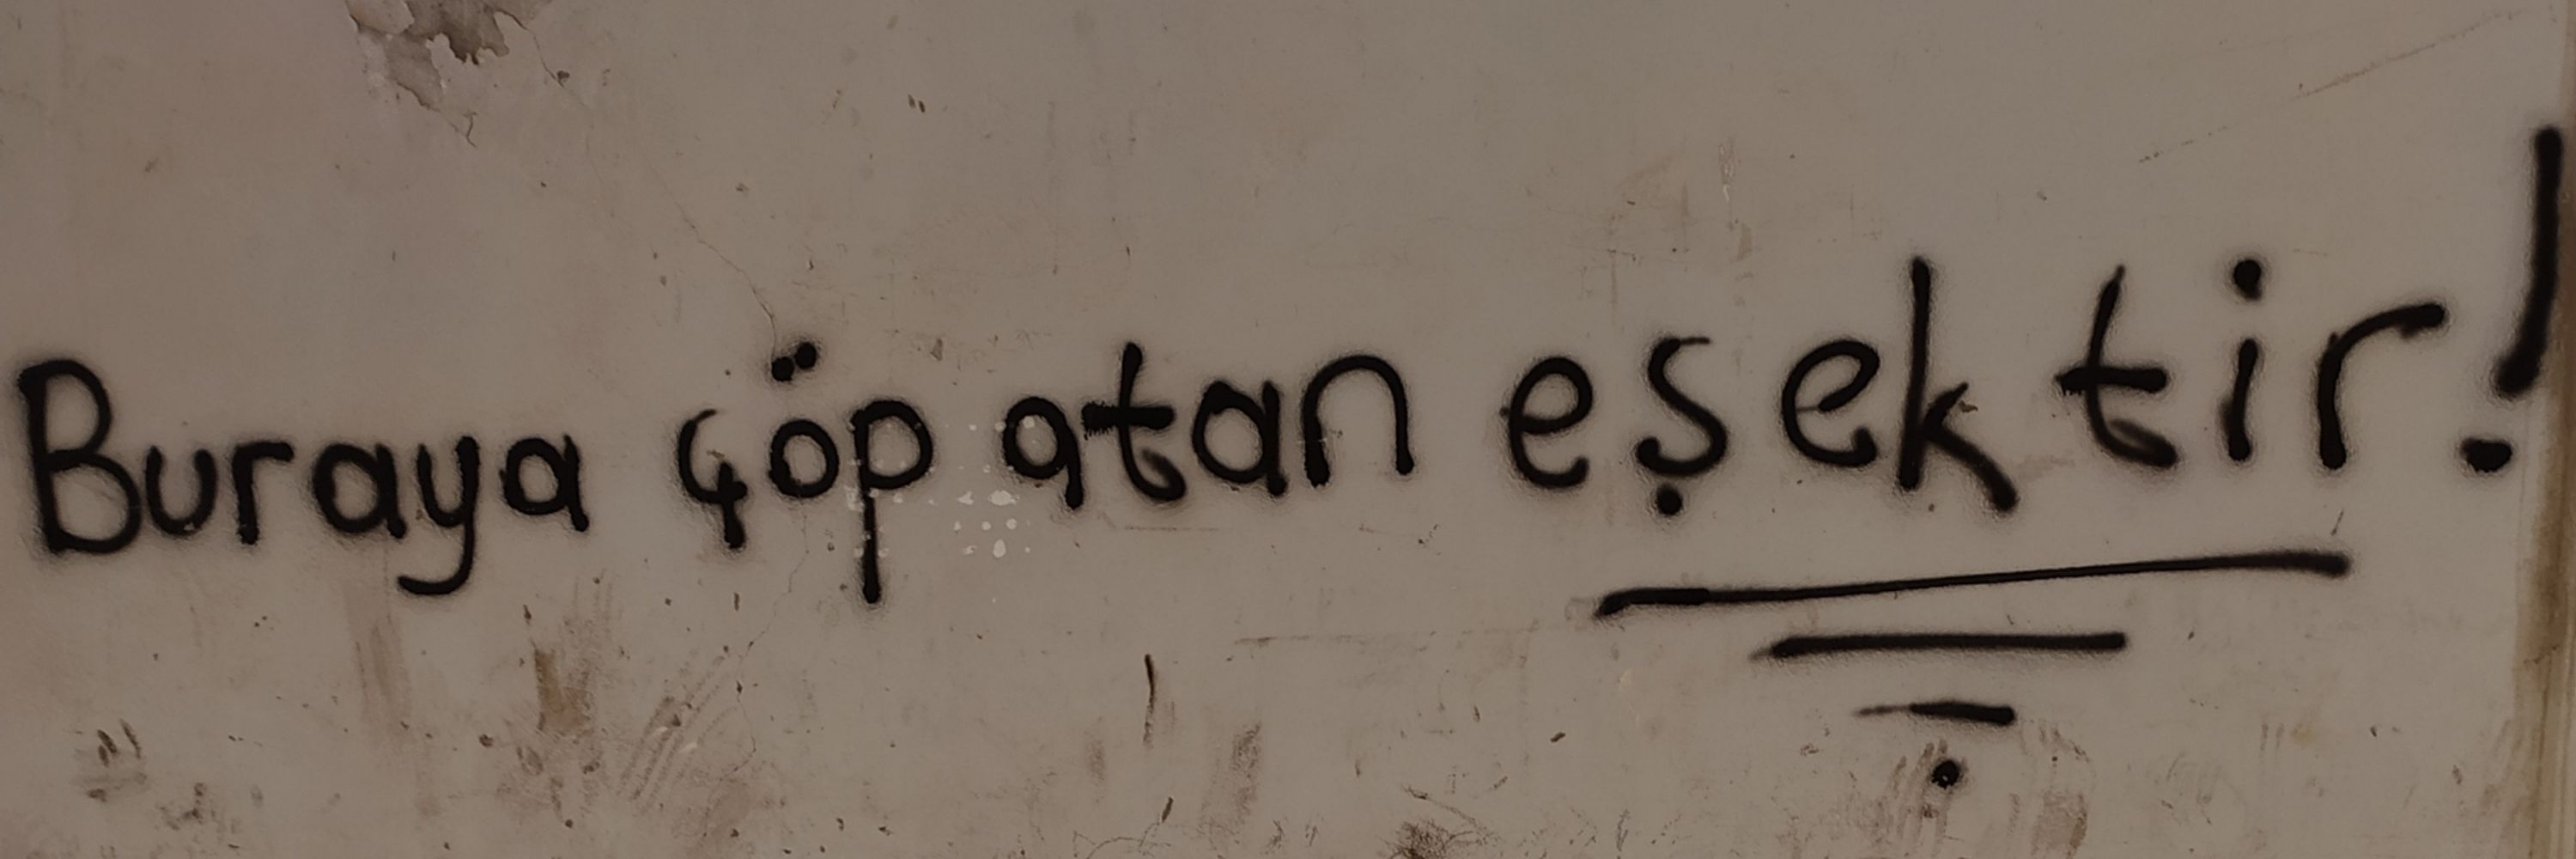 Buraya çöp atan eşektir!